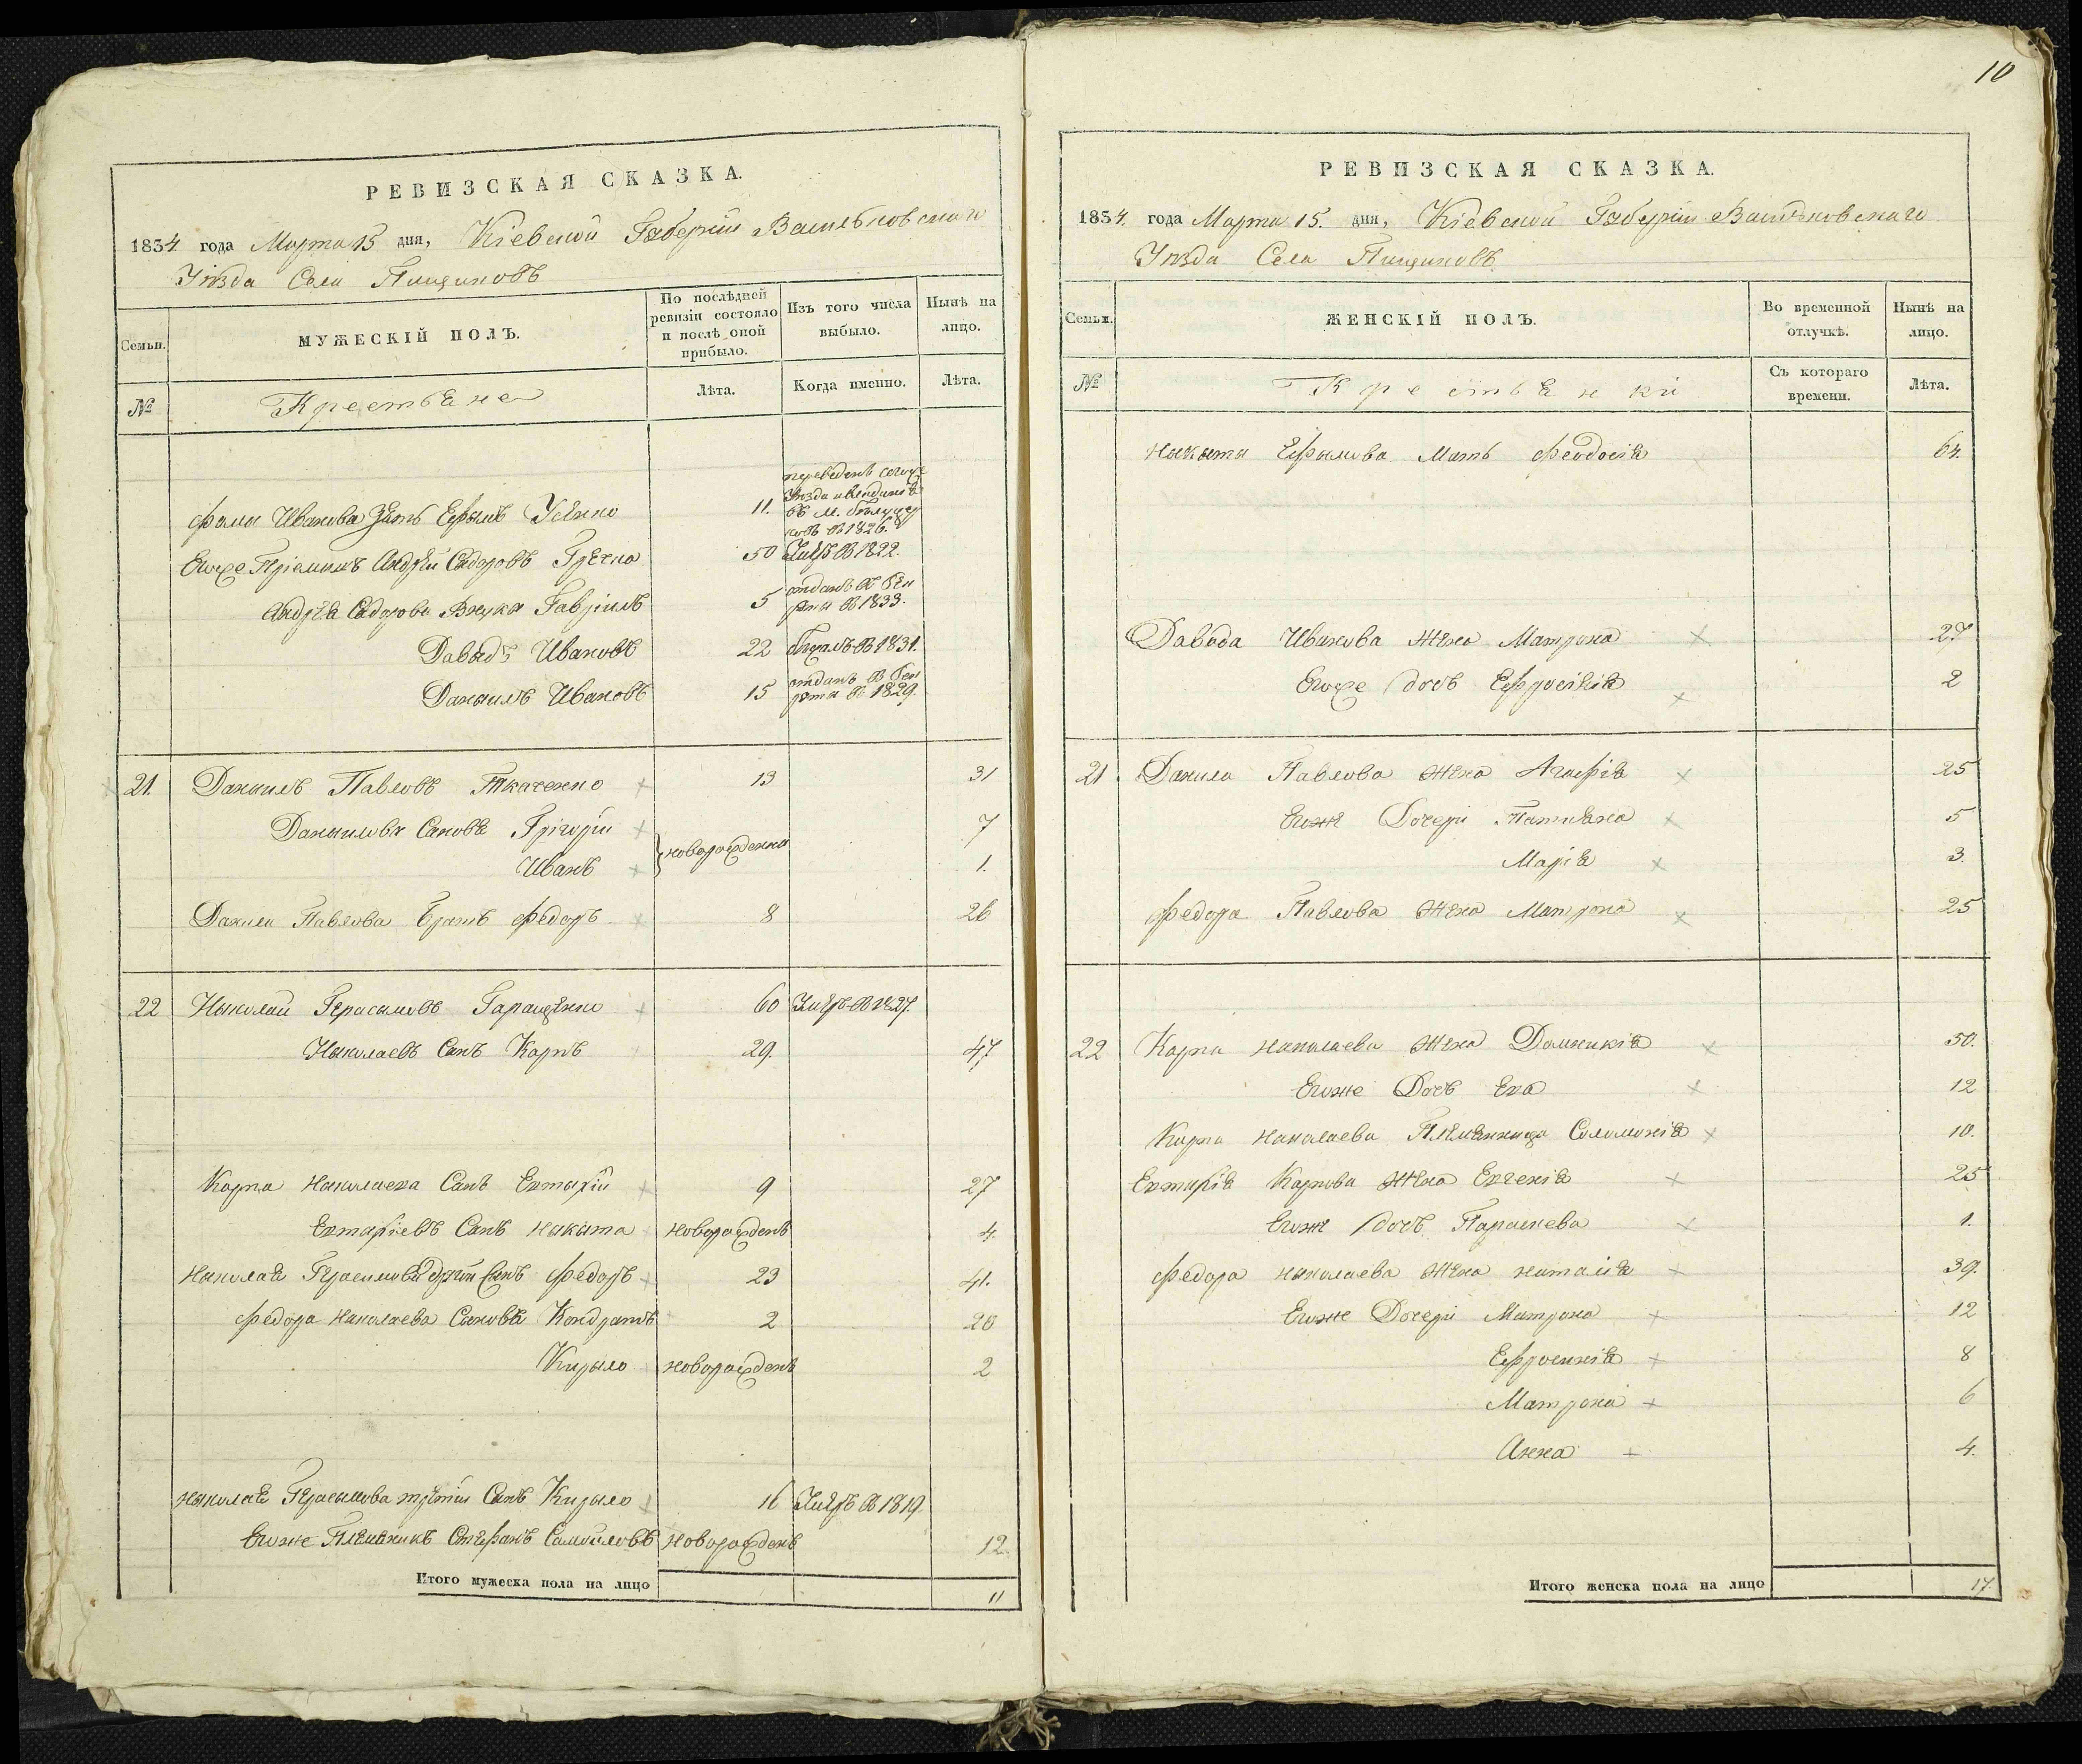 РЕВИЗСКАЯ СКАЗКА.
1834. года Марта 15 дня, Кіевской Губерніи Васильковскаго
Уѣзда Села Пищиковъ
Семьи.
МУЖЕСКІЙ ПОЛЪ.
По послѣдней ревизіи состояло и послѣ оной прибыло.
Изъ того числа выбыло.
Нынѣ на лицо.
№
Крестьяне
Лѣта.
Когда именно.
Лѣта.
Фомы Иванова Зять Ефымъ Усенко 11. переведенъ
уѣзда
въ м.
въ 1826.
Андрій Сыдоровъ 50 Умеръ въ 1822.
Андрея Сыдорова Внуки Гавріилъ 5 отданъ въ Рек
руты въ 1833.
Давыдъ Ивановъ 22 въ 1831.
Даныилъ Ивановъ 15 отданъ въ Рек
руты въ 1829.
21. Даныилъ Павловъ Ткаченко 13 31
Даныиловы Сыновя Грігорій новорожденны 7
Иванъ 1.
Данила Павлова Братъ Федоръ 8 26
22 Ныколай Герасымовъ Гаращенко 60 Умеръ въ 1827.
Ныколаевъ Сынъ Карпъ 29. 47
Карпа Ныколаева Сынъ Евтыхій 9 27
Евтыхіевъ Сынъ Никыта новорожденъ 4.
Ныколая Герасимова другій Сынъ Федоръ 23 41.
Федора Ныколаева Сыновя Кондратъ 2 20
Кырыло новорожденъ 2
Ныколая Герасымова третій Сынъ Кырыло 16 Умеръ въ 1819.
Егоже Племяникъ Стефанъ Самойловъ новорожденъ 12.
Итого мужеска пола на лицо 11
10
РЕВИЗСКАЯ СКАЗКА.
1834. года Марта 15. дня, Кіевской Губерніи Васильковскаго
Уѣзда Села Пищиковъ
Семьи.
ЖЕНСКІЙ ПОЛЪ.
Во временной отлучкѣ.
Нынѣ на лицо.
№
Крестьянки
Съ котораго времени.
Лѣта.
Никыты Ефымова Мать Феодосія 64.
Давыда Иванова Жена Матрона 27
Егоже дочь Ефросинія 2
21 Данила Павлова Жена Агафія 25
Егоже Дочери Татияна 5
Марія 3.
Федора Павлова Жена Матрона 25
22 Карпа Ныколаева Жена Домникія 50.
Егоже Дочь Ева 12
Карпа Ныколаева Племянница Соломонія 10.
Евтыхія Карпова Жена Евгенія 25
Егоже дочь Параскева 1.
Федора Ныколаева Жена Наталія 39.
Егоже Дочери Матрона 12
Ефросинія 8
Матрона 6
Анна 4.
Итого женска пола на лицо 17